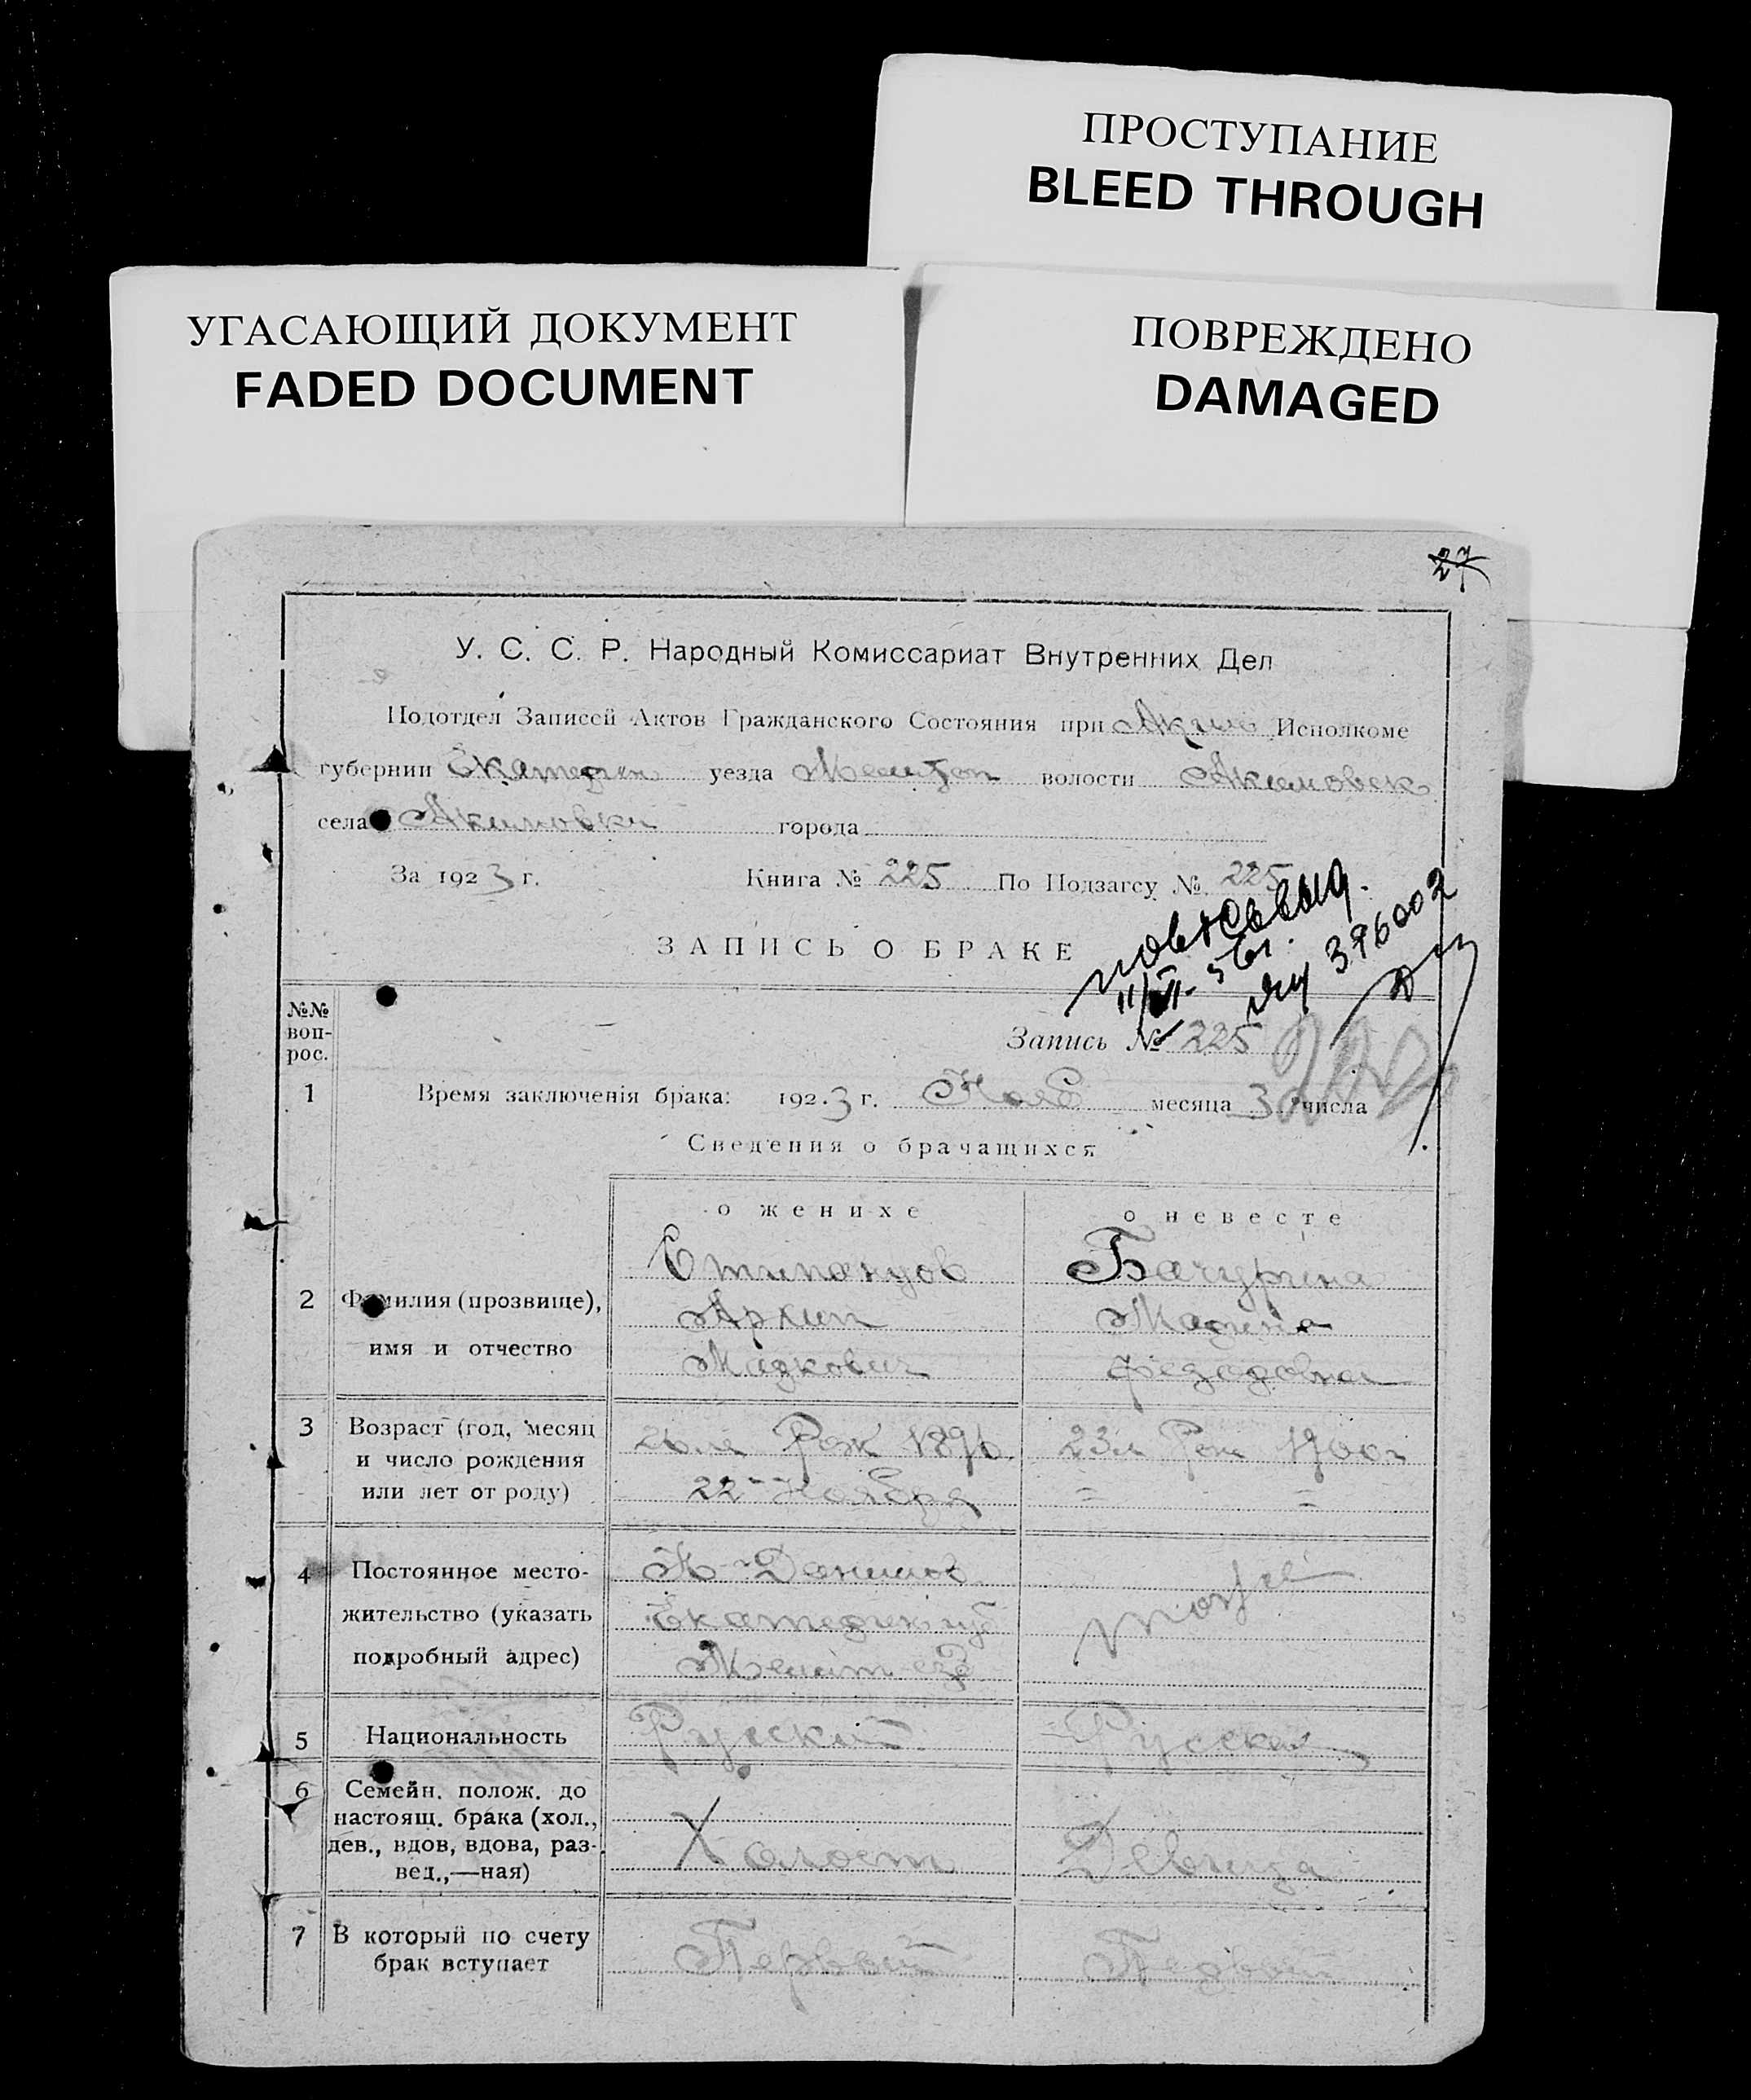 ПРОСТУПАНИЕ
BLEED THROUGH
УГАСАЮЩИЙ ДОКУМЕНТ
FADED DOCUMENT
ПОВРЕЖДЕНО
DAMAGED
27
У. С. С. Р. Народный Комиссариат Внутренних Дел
Подотдел Записей Актов Гражданского Состояния при Аким Исполкоме
губернии Екатерин уезда Мелитоп волости Акимовск
села Акимовки города
За 1923 г. Книга № 225 По Подзагсу № 225
повт. свид.
11/VI-56г.
396002
ЗАПИСЬ О БРАКЕ
№№ воп-рос.
Запись № 225
1 Время заключенія брака: 1923 г. Нояб месяца 3 числа
Сведения о брачащихся
о женихе о невесте
2 Фамилия (прозвище),
имя и отчество
Стипанцов
Архип
Маркович
Бачурина
Марина
Федоровна
3 Возраст (год, месяц
и число рождения
или лет от роду)
26 ле Рож 1896
22 Ноября
23 л Рож 1900 г
= =
4 Постоянное место-
жительство (указать
подробный адрес)
Н-Данилов
Екатерин губ
Мелит
тоже
5 Национальность Русский Русская
6 Семейн. полож. до
настоящ. брака (хол.,
дев., вдов, вдова, раз-
вед.,—ная)
Холост
Девица
7 В который по счету
брак вступает
Первый
Первый